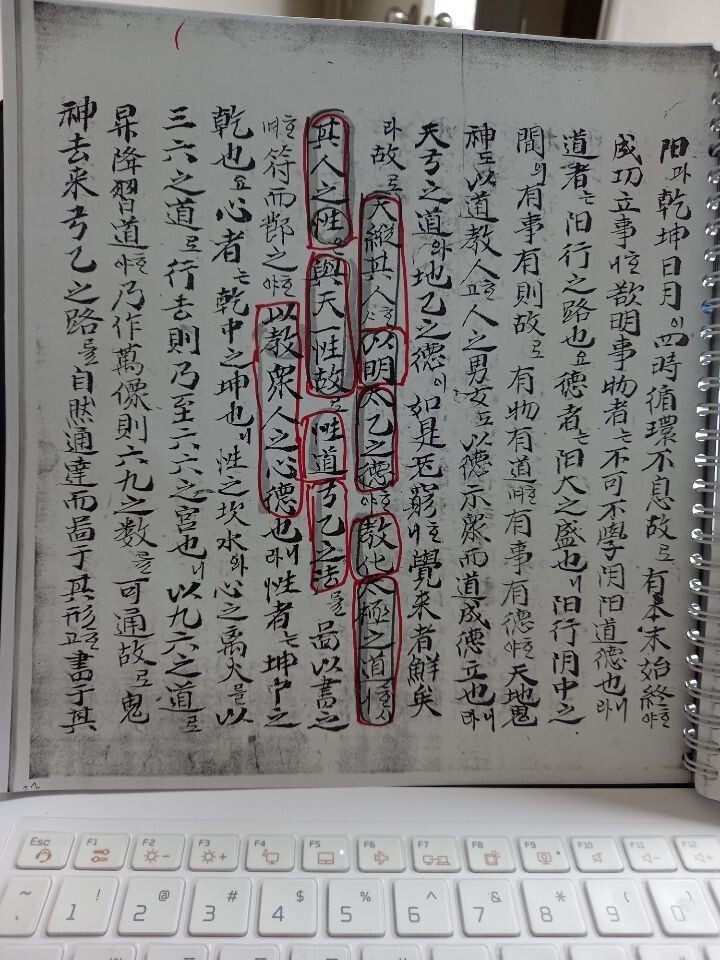 阳과乾坤日月이四時循環不息故로有本末始終하야
成功立事하니欲明事物者는不可不學阴阳道德也라니
道者는阳行之路也요德者는阳大之盛也니阳行阴中之
間의有事有則故로有物有道하며有事有德하야天地鬼
神도以道教人하고人之男女도以德示衆而道成德立也라니
天弓之道와地乙之德이如是无窮하니覺来者鮮矣
라故로天縱其人하사以明太乙之德하야教化太極之道하시니
其人之性은與天一性故로性道弓乙之法를啚以書之
하며符而鄧之하야以教衆人之心德也라니性者는坤中之
乾也요心者는乾中之坤也니性之坎水와心之离火를以
三六之道로行去則乃至六六之宮也니以九六之道로
昇降習道하야乃作萬像則六九之数를可通故로鬼
神去来弓乙之路를自然通達而啚于其形하고書于其
Esc F1 F2 F3 F4 F5 F6 F7 F8 F9 F10 F11 F12
~ ! @ # $ % ^ & * ( )
1 2 3 4 5 6 7 8 9 0